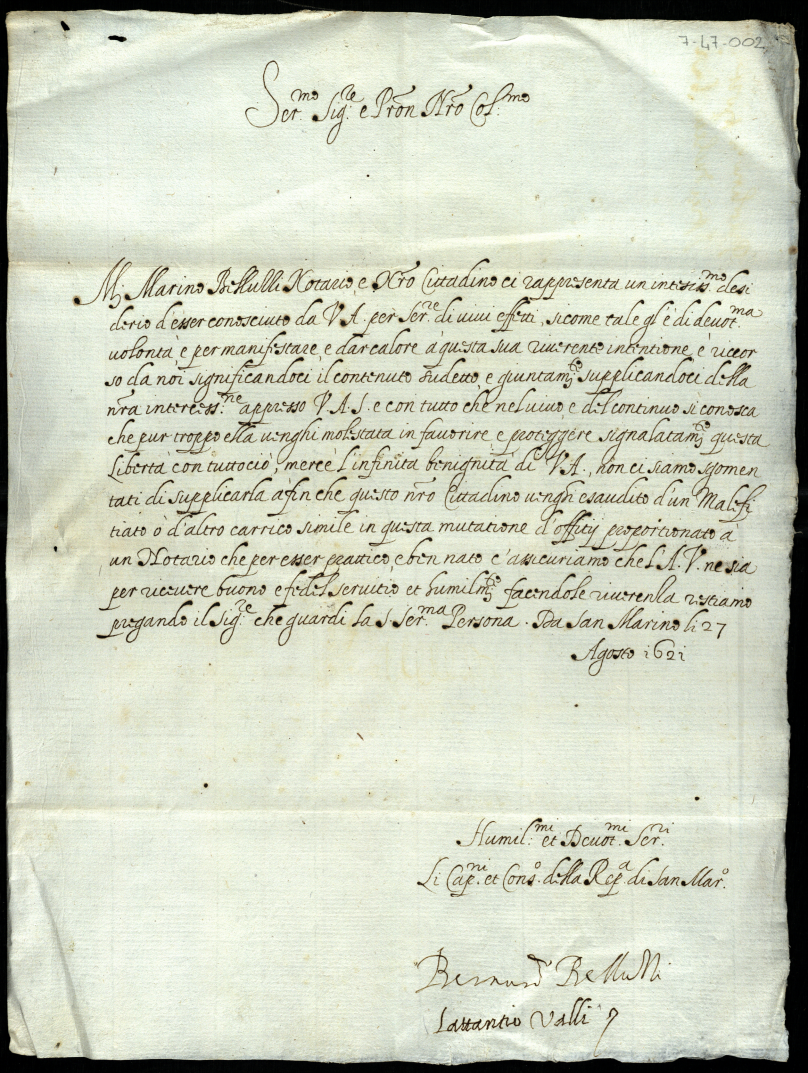 7-47-002
Ser.mo Sig.re e Pron Nro Col.mo
M. Marino Bellulli Notario, e Nro Cittadino ci rappresenta un intensiss.mo desi
derio d'esser conosciuto da V.A. per Ser.re di vivi effetti, sicome tale gl'è di devot.ma
volontà e per manifestare, e dar calore à questa sua riverente intentione, è ricor
so da noi significandoci il contenuto sudetto, e giuntam.te supplicandoci della
nra intercess.ne appresso V.A.S. e con tutto che nel vivo e del continuo si conosca
che pur troppo ella venghi molestata in favorire e proteggere signalatam.te questa
Libertà con tuttociò, mercè l'infinita benignità di V.A., non ci siamo sgomen
tati di supplicarla àfin che questo nro Cittadino venghi esaudito d'un Malefi
tiato ò d'altro carrico simile in questa mutatione d'offity proportionato à
un Notario che per esser prattico, e ben nato c'assicuriamo che l'A.V. ne sia
per ricevere buono e fedel servitio et humilm.te facendole riverenza restiamo
pregando il Sig.re che guardi la S. Ser.ma Persona. Da San Marino li 27
Agosto 1621
Humil.mi et Devot.mi Ser.ri
Li Cap.ni et Cons.o della Rep.a di San Mar.o
Bernard.o Bellulli
Lattantio Valli